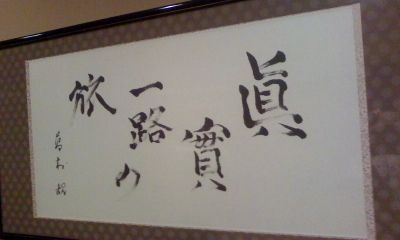 眞實
一路の
旅